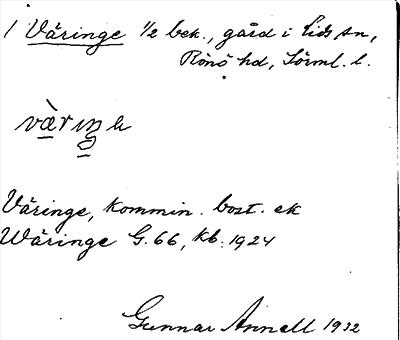 1 Väringe 1/2 bek., gård i Lids sn,
Rönö hd, Sörml. l.
vær
Väringe, kommin. bost. ek
Wäringe G. 66, kb. 1924
Gunnar Annell 1932